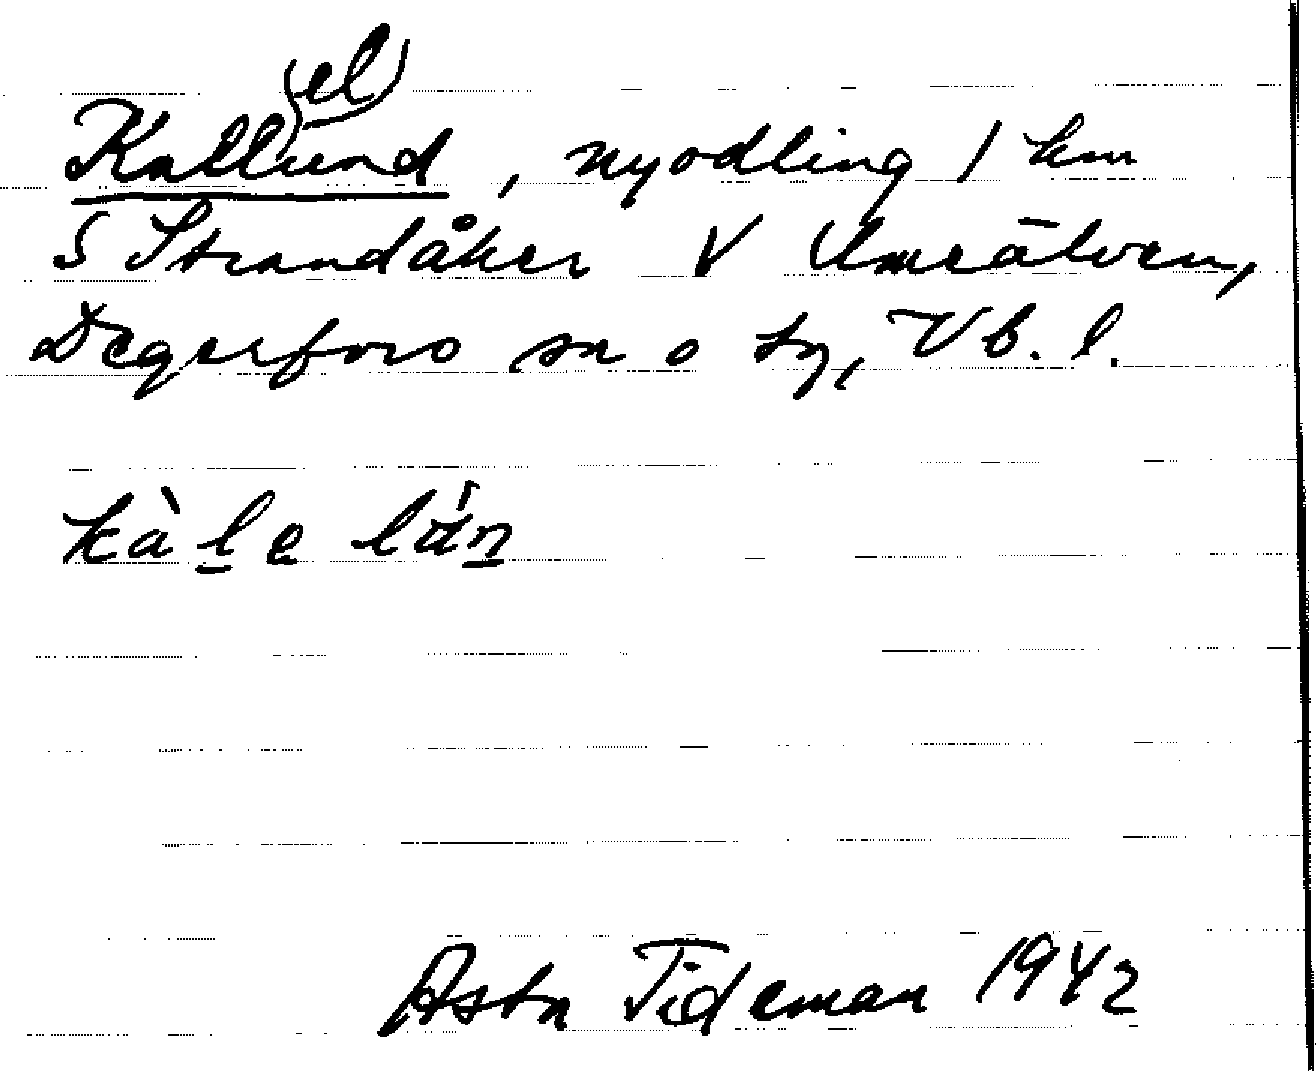 Kall(el)lund, nyodling 1 km
S Strandåker V Umeälven,
Degerfors sn o tg, Vb. l.
kàle lún
Asta Tideman 1942